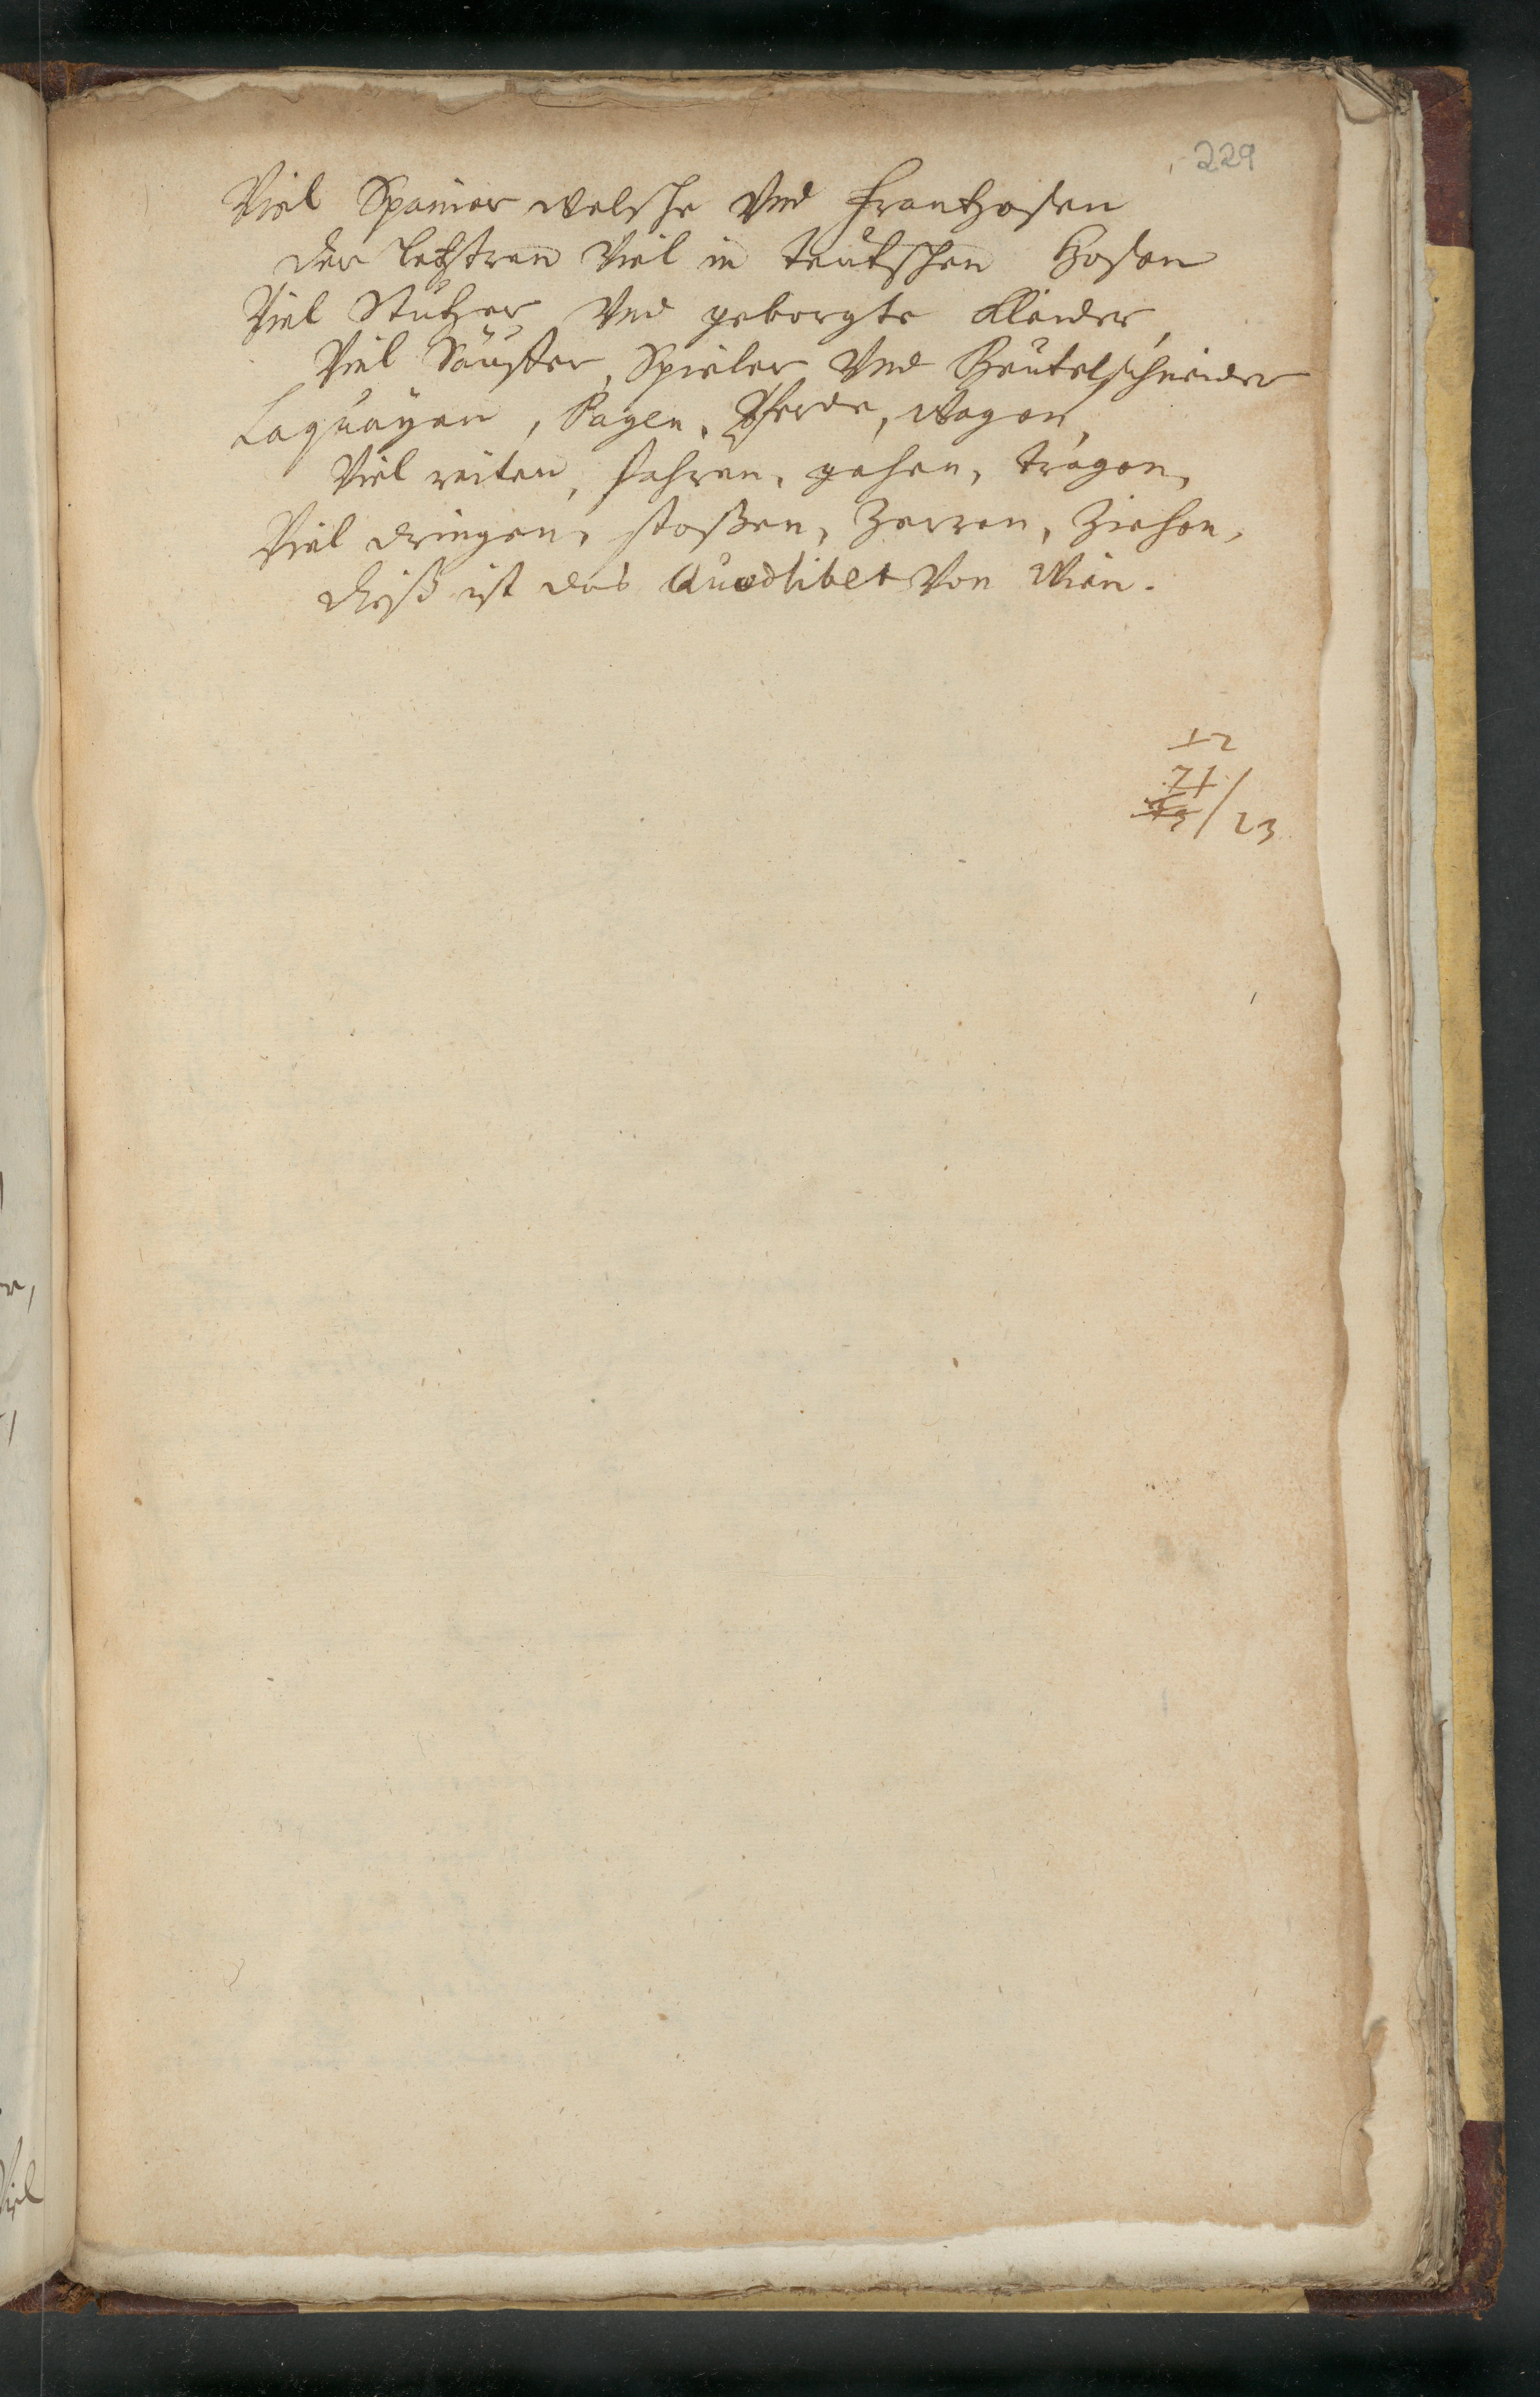 229
Viel Spanier welsche Vnd Frantzosen
der letzstren Viel in teutschen Hosen
Viel Stutzer Vnd geborgte Kleider,
Viel Säuffer, Spieler Vnd Beutelschneider
Laquayen, Pagen, Pferde, Wagen,
Viel reiten, fahren, gehen, tragen,
Viel dringen, stoßen, Zerren, Ziehen,
dieß ist das Quodlibet Von Wien.
12
71
/23
Viel